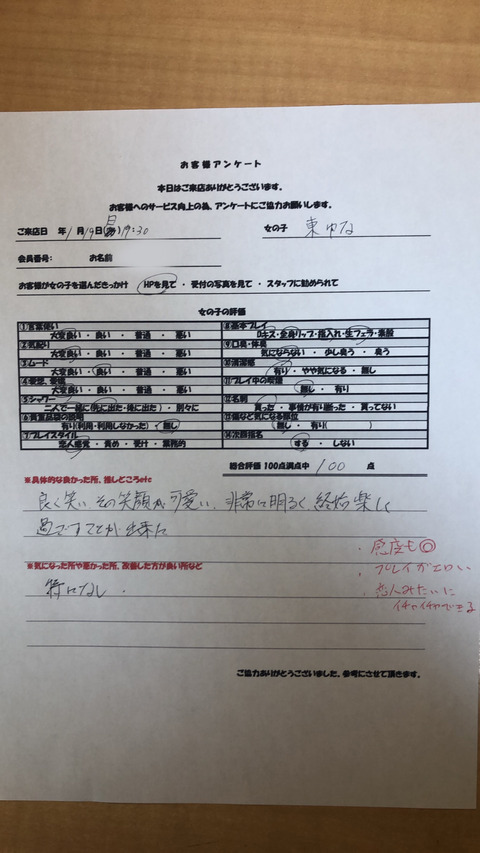 お客様アンケート
本日はご来店ありがとうございます。
お客様へのサービス向上の為、アンケートにご協力お願いします。
ご来店日 年1月19日(月)19:30 女の子 東ゆな
会員番号: お名前
お客様が女の子を選んだきっかけ HPを見て ・ 受付の写真を見て ・ スタッフに勧められて
女の子の評価
①言葉使い
大変良い ・ 良い ・ 普通 ・ 悪い
②気配り
大変良い ・ 良い ・ 普通 ・ 悪い
③ムード
大変良い ・ 良い ・ 普通 ・ 悪い
大変良い ・ 良い ・ 普通 ・ 悪い
⑤シャワー
二人で一緒に(先に出た・後に出た) ・ 別々に
⑥貴重品袋の説明
有り(利用・利用しなかった) ・ 無し
⑦プレイスタイル
恋人感覚 ・ 責め ・ 受け ・ 業務的
⑧基本プレイ
Dキス・全身リップ・指入れ・生フェラ・素股
⑨口臭・体臭
気にならない ・ 少し臭う ・ 臭う
⑩清潔感
有り ・ やや気になる ・ 無し
⑪プレイ中の喫煙
無し ・ 有り
⑫名刺
貰った ・ 事情が有り断った ・ 貰ってない
⑬傷など気になる部位
(無し ・ 有り( )
⑭次回指名
する ・ しない
総合評価 100点満点中 100 点
※具体的な良かった所、推しどころetc
良く笑い、その笑顔が可愛い、非常に明るく、終始楽しく
過ごすことが出来た
※気になった所や悪かった所、改善した方が良い所など
特になし.
・感度も◎
・プレイがエロい
・恋人みたいに
イチャイチャできる
ご協力ありがとうございました。参考にさせて頂きます。